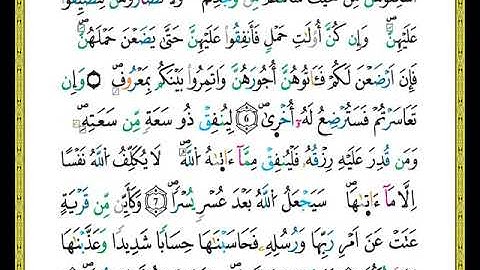 أَسْكِنُوهُنَّ مِنْ حَيْثُ سَكَنتُم مِّن وُجْدِكُمْ وَلَا تُضَآرُّوهُنَّ لِتُضَيِّقُوا۟
عَلَيْهِنَّ ۚ وَإِن كُنَّ أُو۟لَٰتِ حَمْلٍ فَأَنفِقُوا۟ عَلَيْهِنَّ حَتَّىٰ يَضَعْنَ حَمْلَهُنَّ ۚ
فَإِنْ أَرْضَعْنَ لَكُمْ فَـَٔاتُوهُنَّ أُجُورَهُنَّ وَأْتَمِرُوا۟ بَيْنَكُم بِمَعْرُوفٍ ۖ وَإِن
تَعَاسَرْتُمْ فَسَتُرْضِعُ لَهُۥٓ أُخْرَىٰ ۝6 لِيُنفِقْ ذُو سَعَةٍ مِّن سَعَتِهِۦ ۖ
وَمَن قُدِرَ عَلَيْهِ رِزْقُهُۥ فَلْيُنفِقْ مِمَّآ ءَاتَىٰهُ ٱللَّهُ ۚ لَا يُكَلِّفُ ٱللَّهُ نَفْسًا
إِلَّا مَآ ءَاتَىٰهَا ۚ سَيَجْعَلُ ٱللَّهُ بَعْدَ عُسْرٍ يُسْرًا ۝7 وَكَأَيِّن مِّن قَرْيَةٍ
عَتَتْ عَنْ أَمْرِ رَبِّهَا وَرُسُلِهِۦ فَحَاسَبْنَٰهَا حِسَابًا شَدِيدًا وَعَذَّبْنَٰهَا